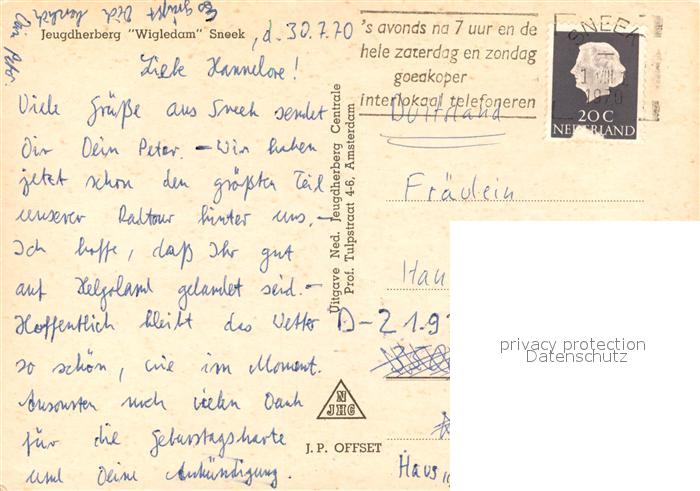 Es grüßt Dich herzlich
Dein Peter.
Jeugdherberg "Wigledam" Sneek
, d. 30.7.70
Liebe Hannelore!
Viele Grüße aus Sneek sendet
Dir Dein Peter. – Wir haben
jetzt schon den größten Teil
unserer Radtour hinter uns. –
Ich hoffe, daß Ihr gut
auf Helgoland gelandet seid. –
Hoffentlich bleibt das Wetter
so schön, wie im Moment.
Ansonsten noch vielen Dank
für die Geburtstagskarte
und Deine Ankündigung.
Uitgave Ned. Jeugdherberg Centrale
Prof. Tulpstraat 4-6, Amsterdam
N
JHC
J.P. OFFSET
's avonds na 7 uur en de
hele zaterdag en zondag
goedkoper
interlokaal telefoneren
SNEEK
1 VIII
1970
20 C
NEDERLAND
Duitsland
Fräulein
Han
D-21.9
Haus
privacy protection
Datenschutz